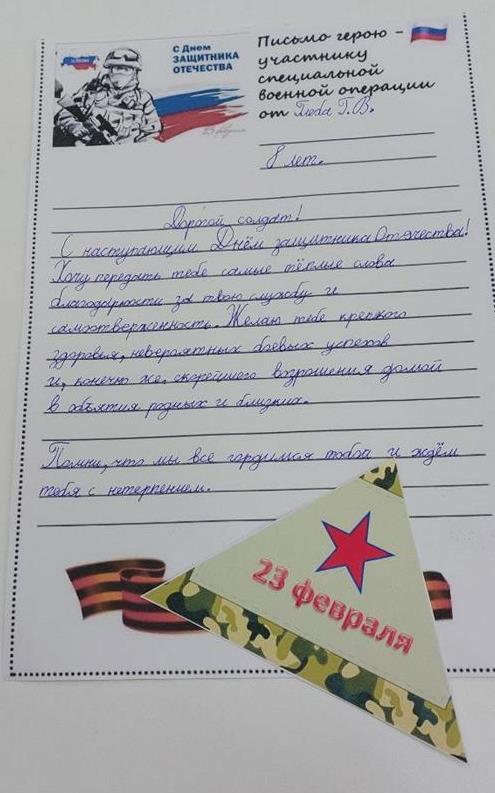 С Днем
ЗАЩИТНИКА
ОТЕЧЕСТВА
23 февраля
Письмо герою –
участнику
специальной
военной операции
от Глеба Г.В.
8 лет.
Дорогой солдат!
С наступающим Днём защитника Отечества!
Хочу передать тебе самые тёплые слова
благодарности за твою службу и
самоотверженность. Желаю тебе крепкого
здоровья, невероятных боевых успехов
и, конечно же, скорейшего возрошения домой
в объятия родных и близких.
Помни, что мы все гордимся тобой и ждём
тебя с нетерпением.
23 февраля